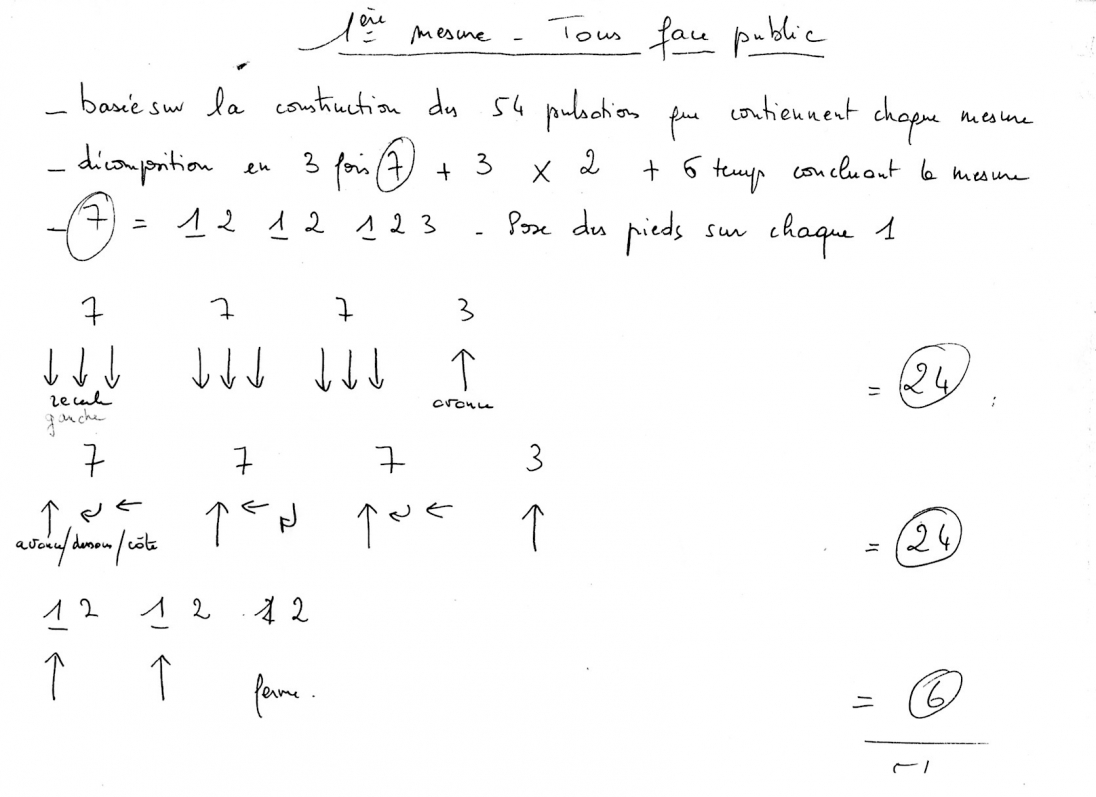 1ère mesure - Tous face public
- basée sur la construction des 54 pulsations que contiennent chaque mesure
- décomposition en 3 fois 7 + 3 x 2 + 6 temps concluant la mesure
- 7 = 1 2 1 2 1 2 3 - Pose des pieds sur chaque 1
7 7 7 3
↓ ↓ ↓ ↓ ↓ ↓ ↓ ↓ ↓ ↑ = 24
recule avance
gauche
7 7 7 3
↑ ↲ ← ↑ ← ↲ ↑ ↲ ← ↑ = 24
avance/dessous/côté
1 2 1 2 1 2
↑ ↑ ferme. = 6